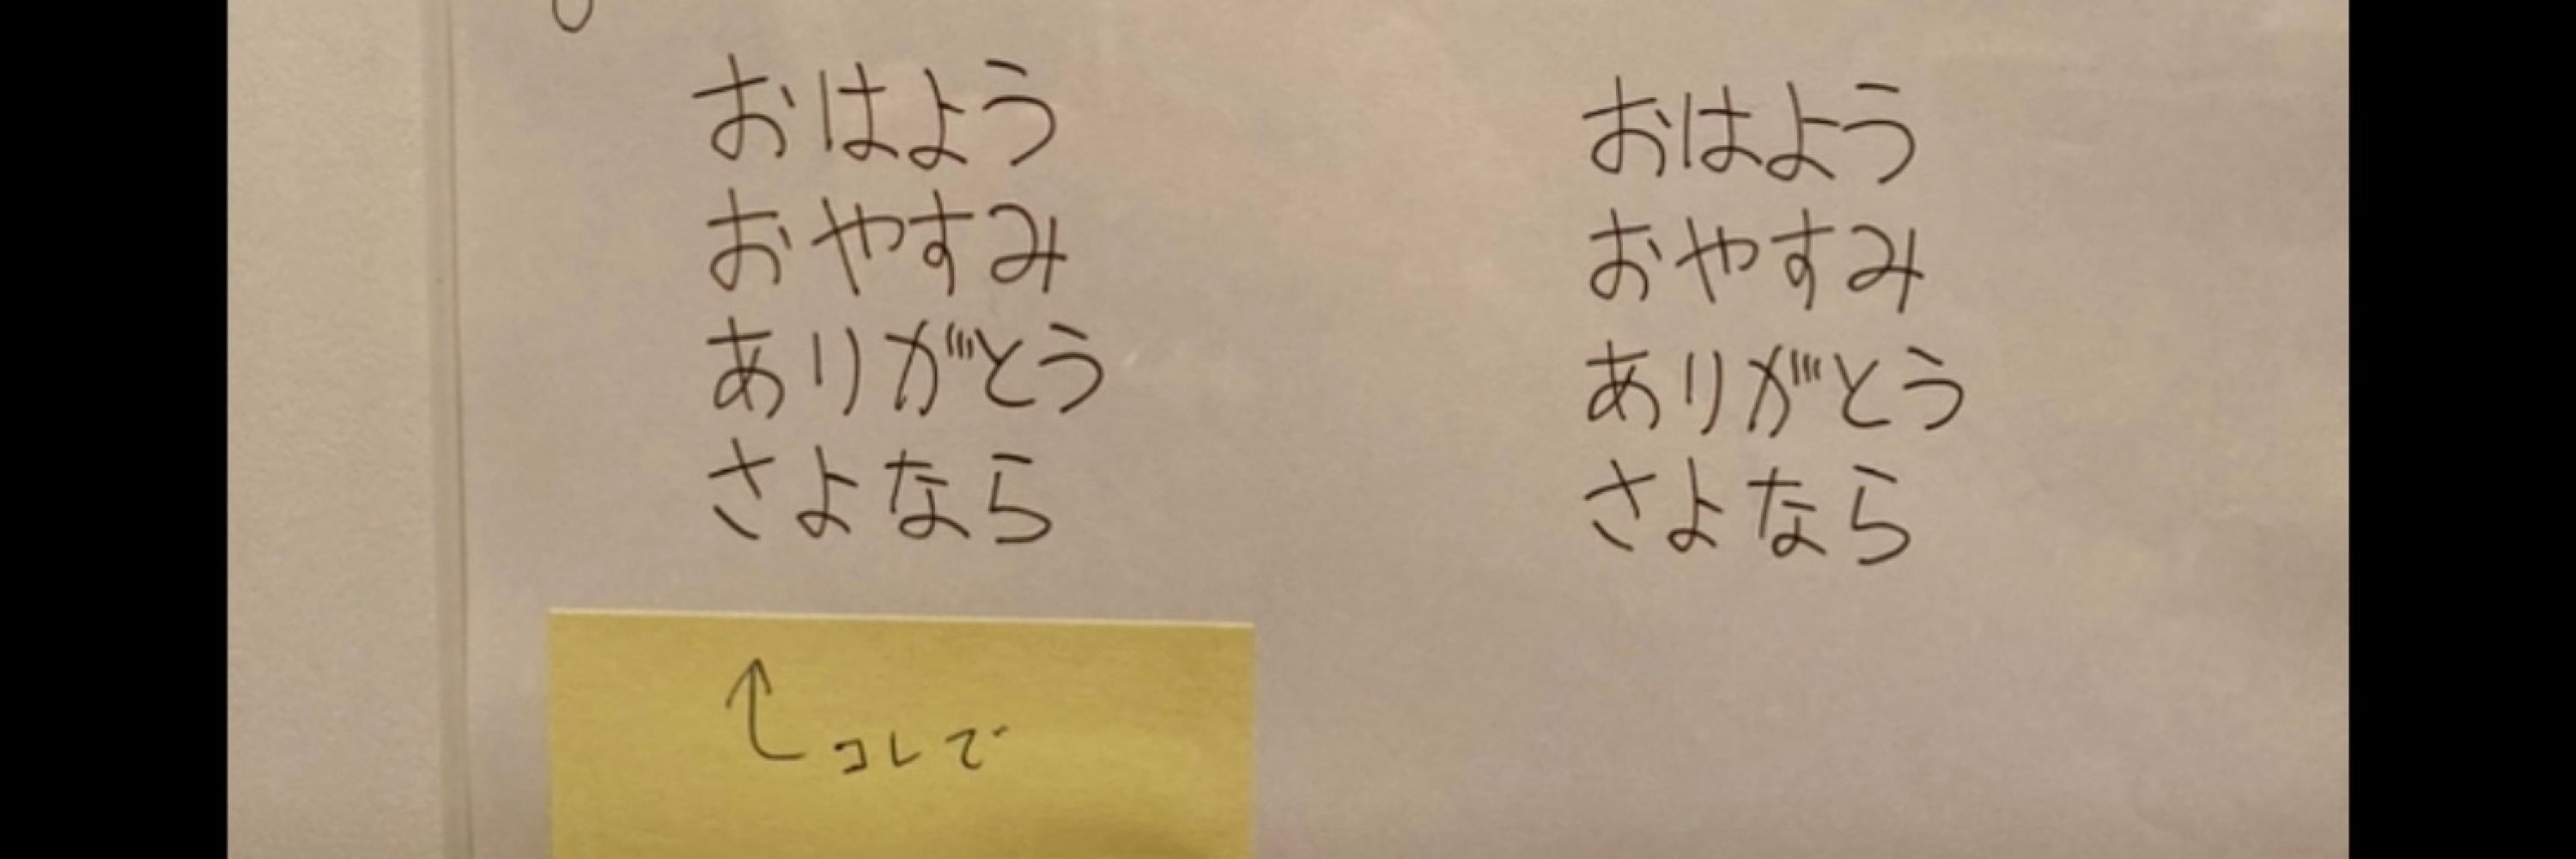 おはよう
おやすみ
ありがとう
さよなら
おはよう
おやすみ
ありがとう
さよなら
↑コレで